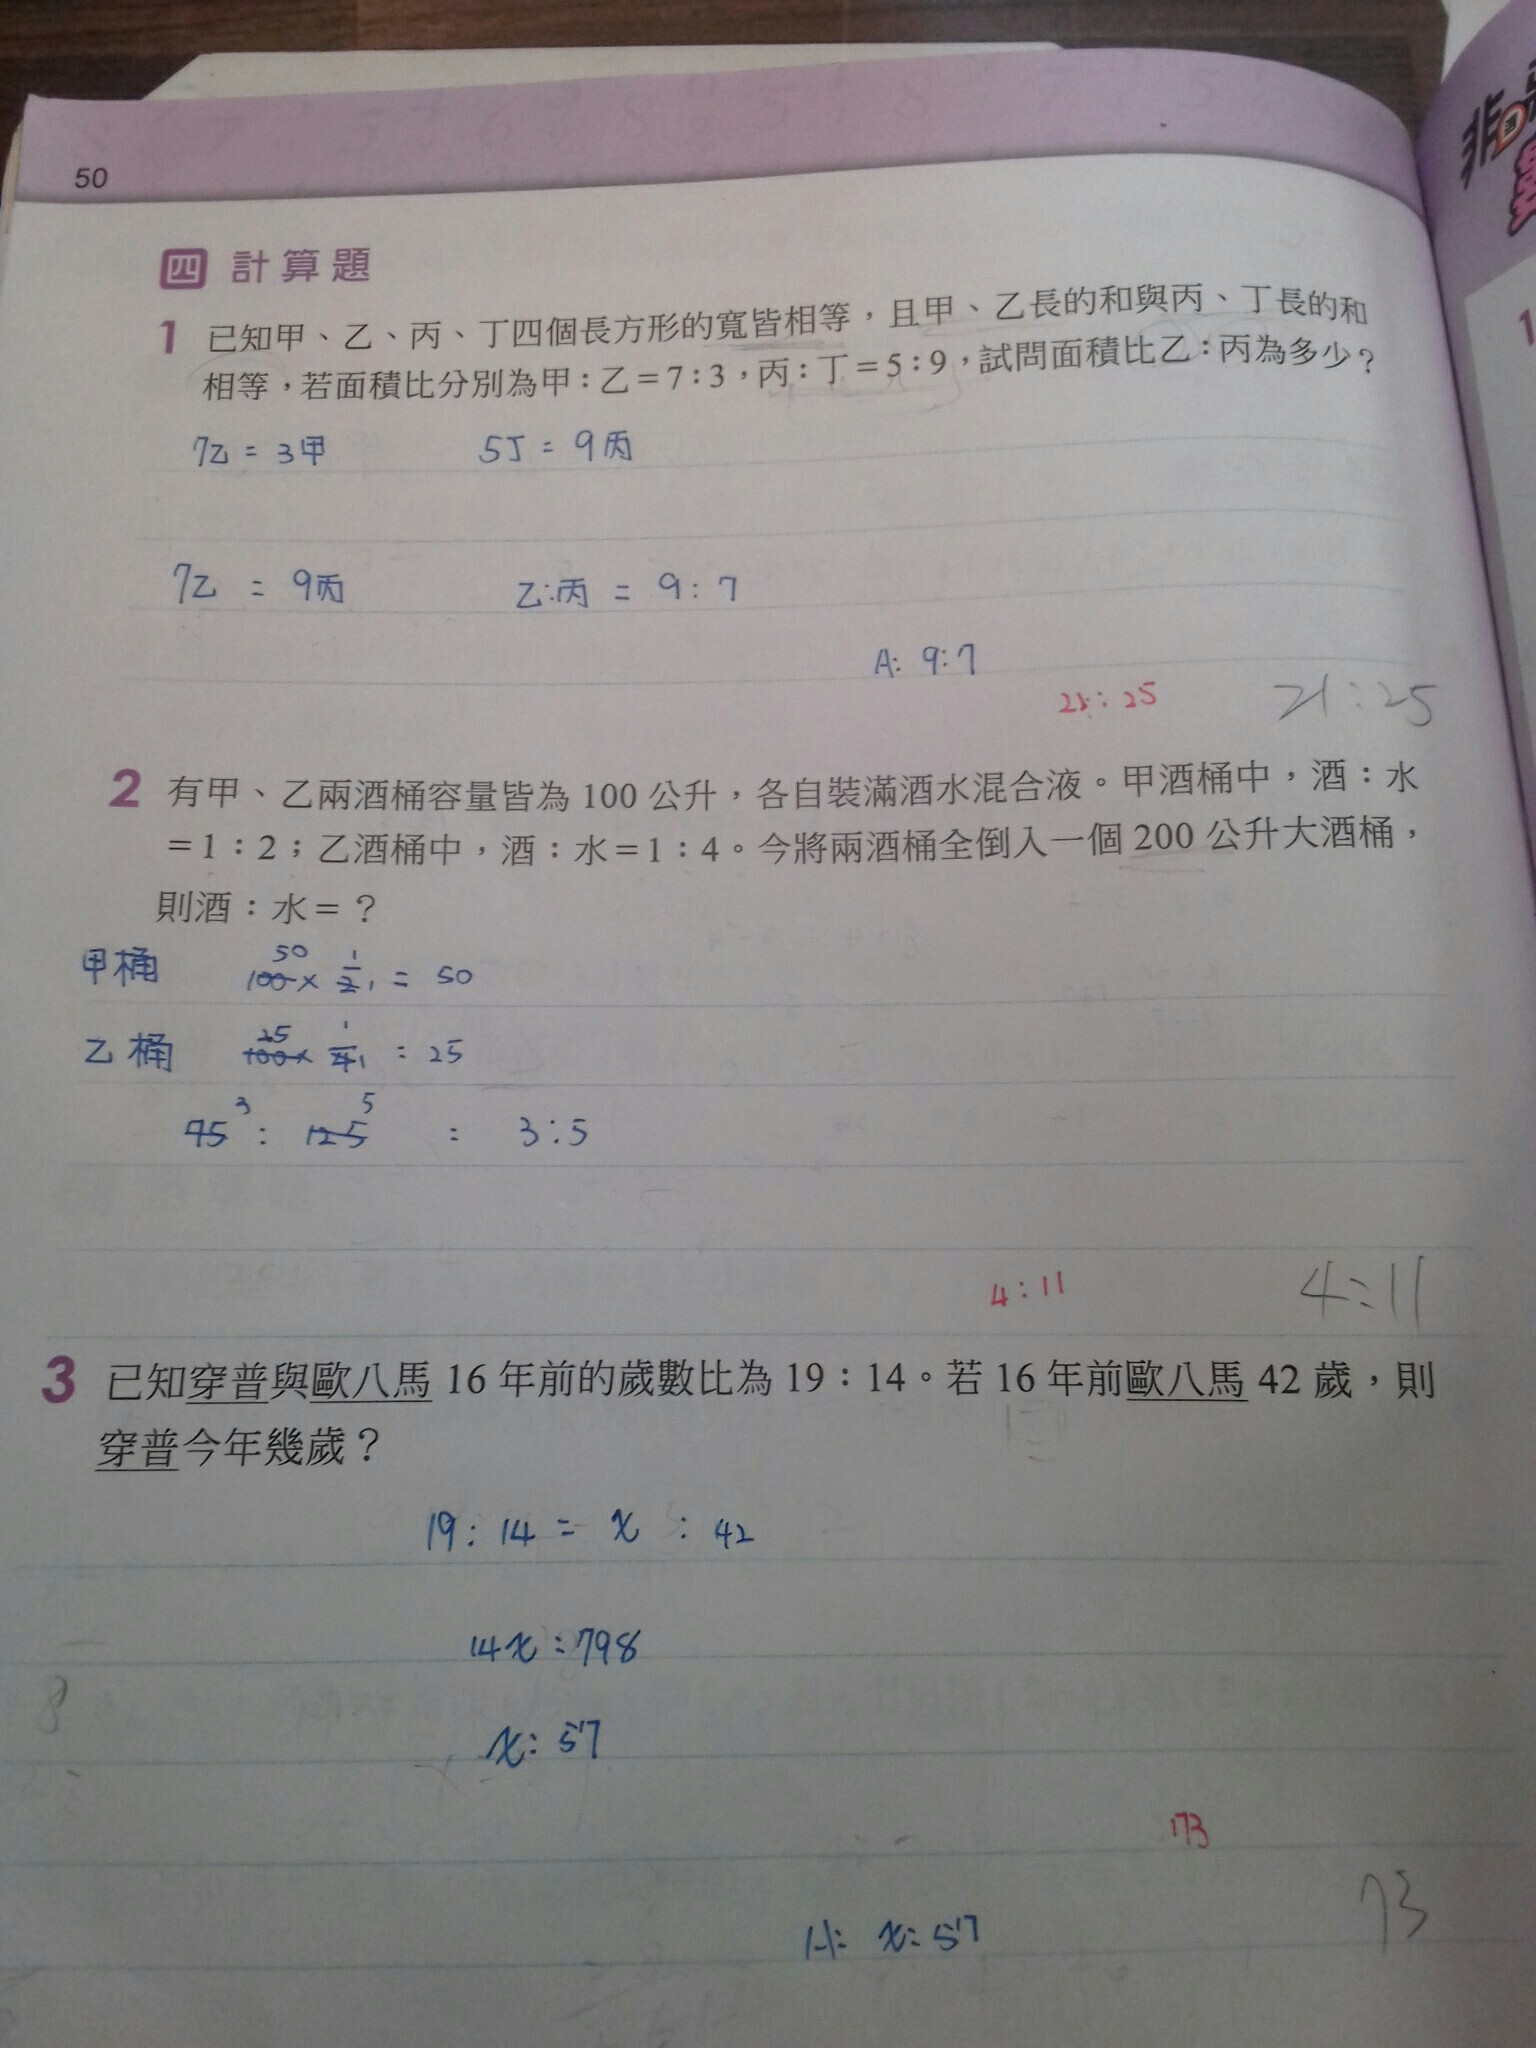 50
四 計算題
1 已知甲、乙、丙、丁四個長方形的寬皆相等，且甲、乙長的和與丙、丁長的和
相等，若面積比分別為甲：乙＝7：3，丙：丁＝5：9，試問面積比乙：丙為多少？
7乙 = 3甲 5丁 = 9丙
7乙 = 9丙 乙:丙 = 9:7
A: 9:7
21:25
2 有甲、乙兩酒桶容量皆為 100 公升，各自裝滿酒水混合液。甲酒桶中，酒：水
＝1：2；乙酒桶中，酒：水＝1：4。今將兩酒桶全倒入一個 200 公升大酒桶，
則酒：水＝？
甲桶 50 100 × 1/2 1 = 50
乙桶 25 100 × 1/4 1 = 25
75 3 : 125 5 = 3:5
4:11 4:11
3 已知穿普與歐八馬 16 年前的歲數比為 19：14。若 16 年前歐八馬 42 歲，則
穿普今年幾歲？
19:14 = x : 42
14x = 798
x = 57
73
A: x = 57